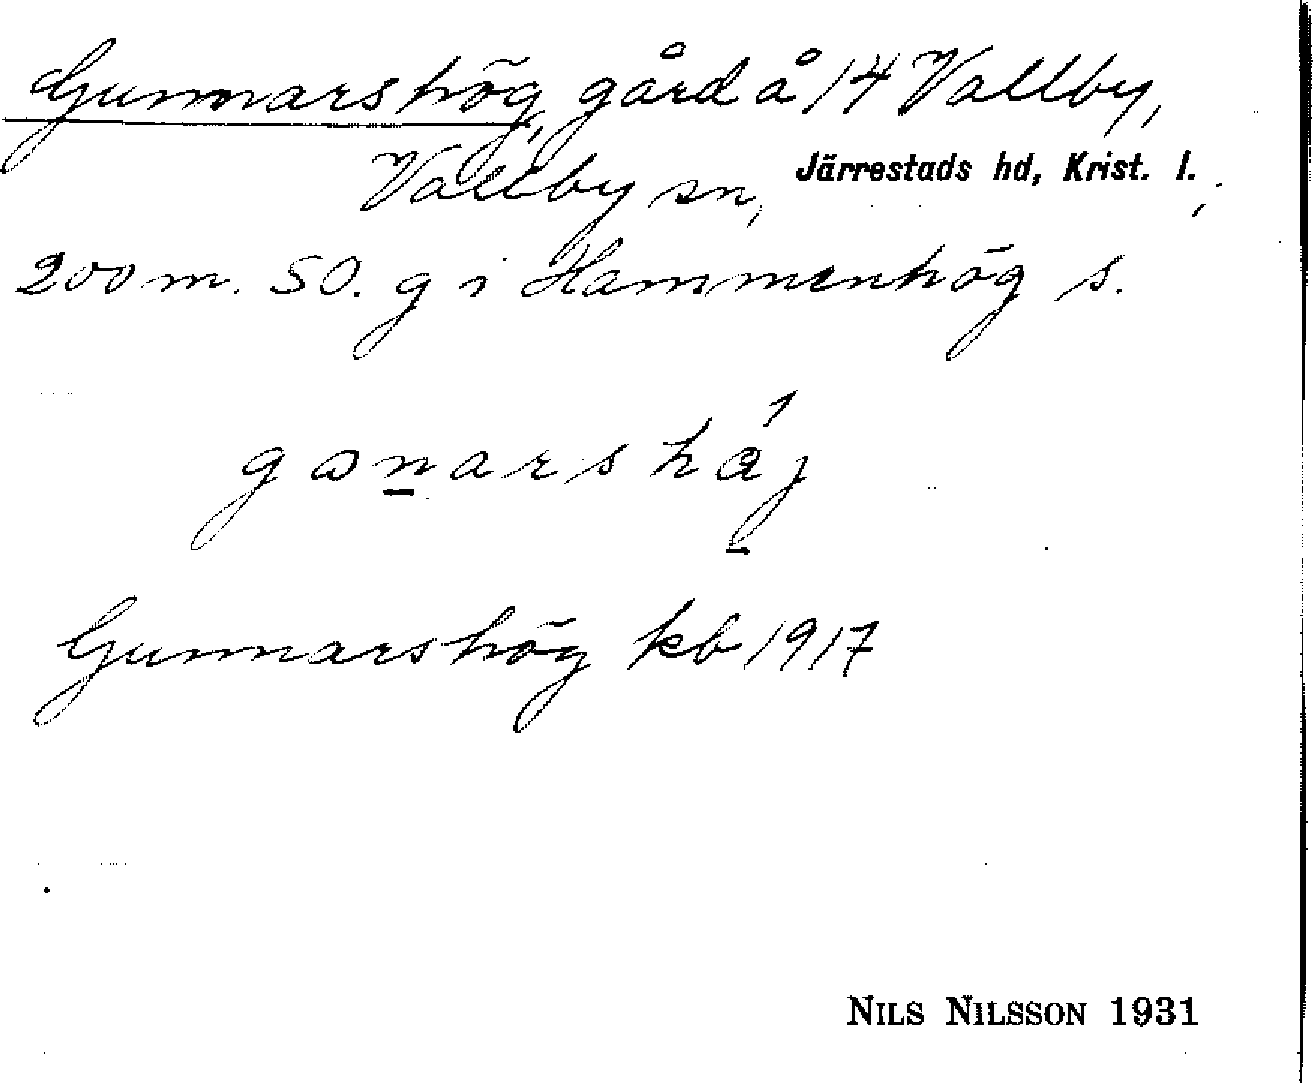 Gunnarshög, gård å 14 Vallby,
Vallby sn, Järrestads hd, Krist. l.;
200 m. SO. g i Hammenhög s.
gɷnarsháj
Gunnarshög kb 1917
NILS NILSSON 1931